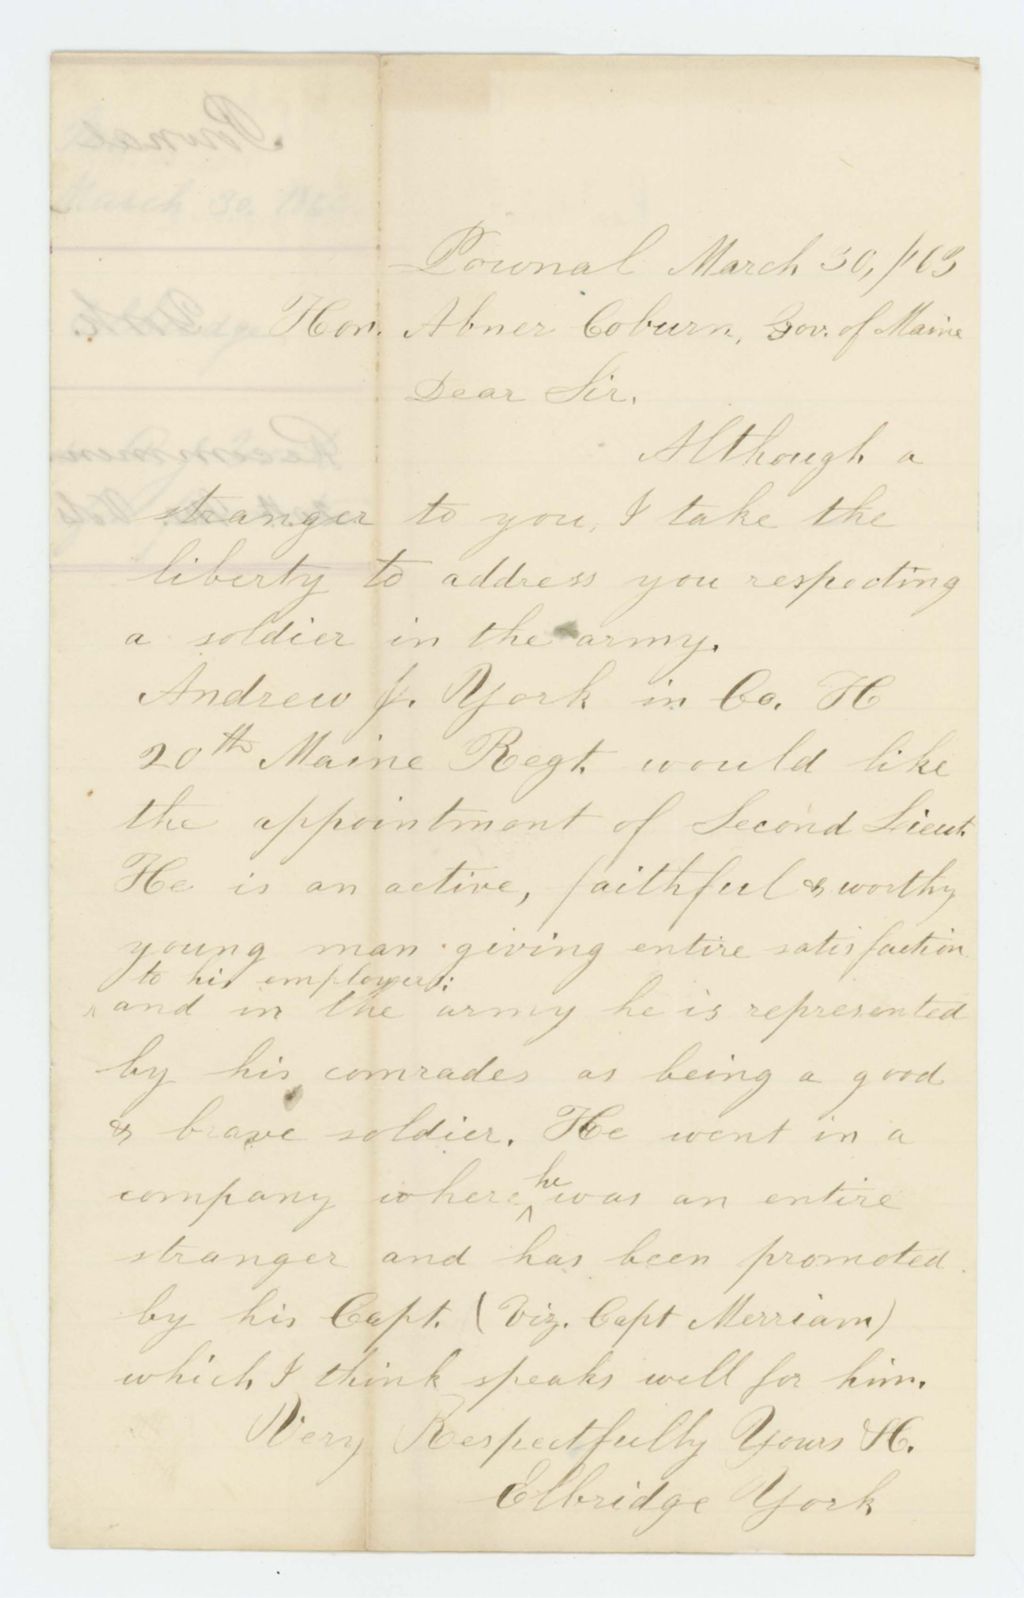 Pownal March 30, /63
Hon. Abner Coburn, Gov. of Maine
Dear Sir.
Although a
stranger to you, I take the
liberty to address you respecting
a soldier in the army.
Andrew J. York in Co. H
20th Maine Regt. would like
the appointment of Second Lieut.
He is an active, faithful & worthy
young man giving entire satisfaction
to his employers;
and in the army he is represented
by his comrades as being a good
& brave soldier. He went in a
company where he was an entire
stranger and has been promoted
by his Capt. (Viz. Capt Merriam)
which I think speaks well for him.
Very Respectfully Yours &c.
Elbridge York